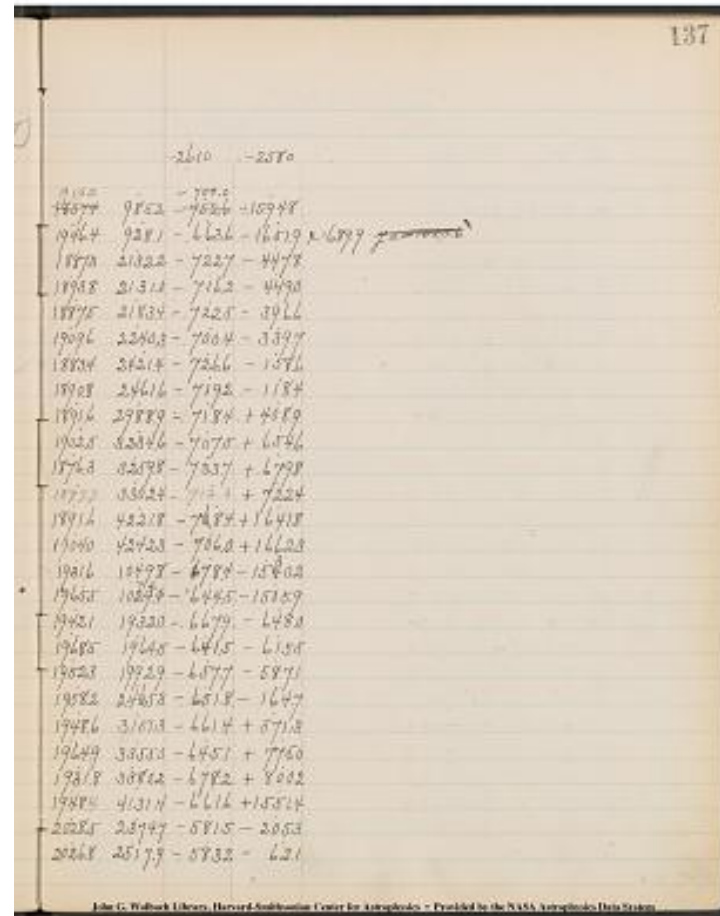 137
-2610 -2580
- 709.0
18574 9852 - 7526 - 15948
19464 9281 - 6636 - 16519 x 6899
18873 21322 - 7227 - 4478
18938 21310 - 7162 - 4490
18875 21834 - 7225 - 3966
19096 22403 - 7004 - 3397
18834 24214 - 7266 - 1586
18908 24616 - 7192 - 1184
18916 29889 - 7184 + 4089
19025 32346 - 7075 + 6546
18763 32598 - 7337 + 6798
33024 + 7224
18916 42218 - 7184 + 16418
19040 42423 - 7060 + 16623
19316 10498 - 6784 - 15302
19655 - 6445
19421 19320 - 6679 - 6480
19685 19645 - 6415 - 6155
19523 19929 - 6577 - 5871
19582 24153 - 6518 - 1647
19486 31513 - 6614 + 5713
19649 33550 - 6451 + 7750
19318 33802 - 6782 + 8002
19484 41314 - 6616 + 15514
20285 23747 - 5815 - 2053
20268 25179 - 5832 - 621
John G. Wolbach Library, Harvard-Smithsonian Center for Astrophysics • Provided by the NASA Astrophysics Data System